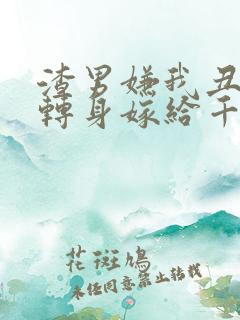 渣男嫌我丑
轉身嫁給千
花斑鳩
未经同意禁止转载